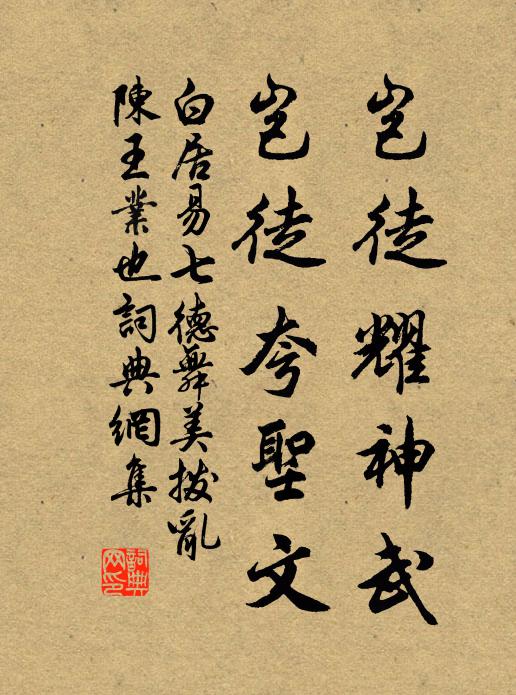 豈徒耀神武
豈徒夸聖文
白居易七德舞美撥亂
陳王業也詞典網集
詞典網印